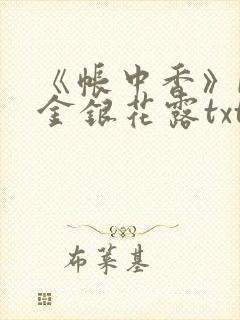 《帐中香》
金银花露txt
布莱基